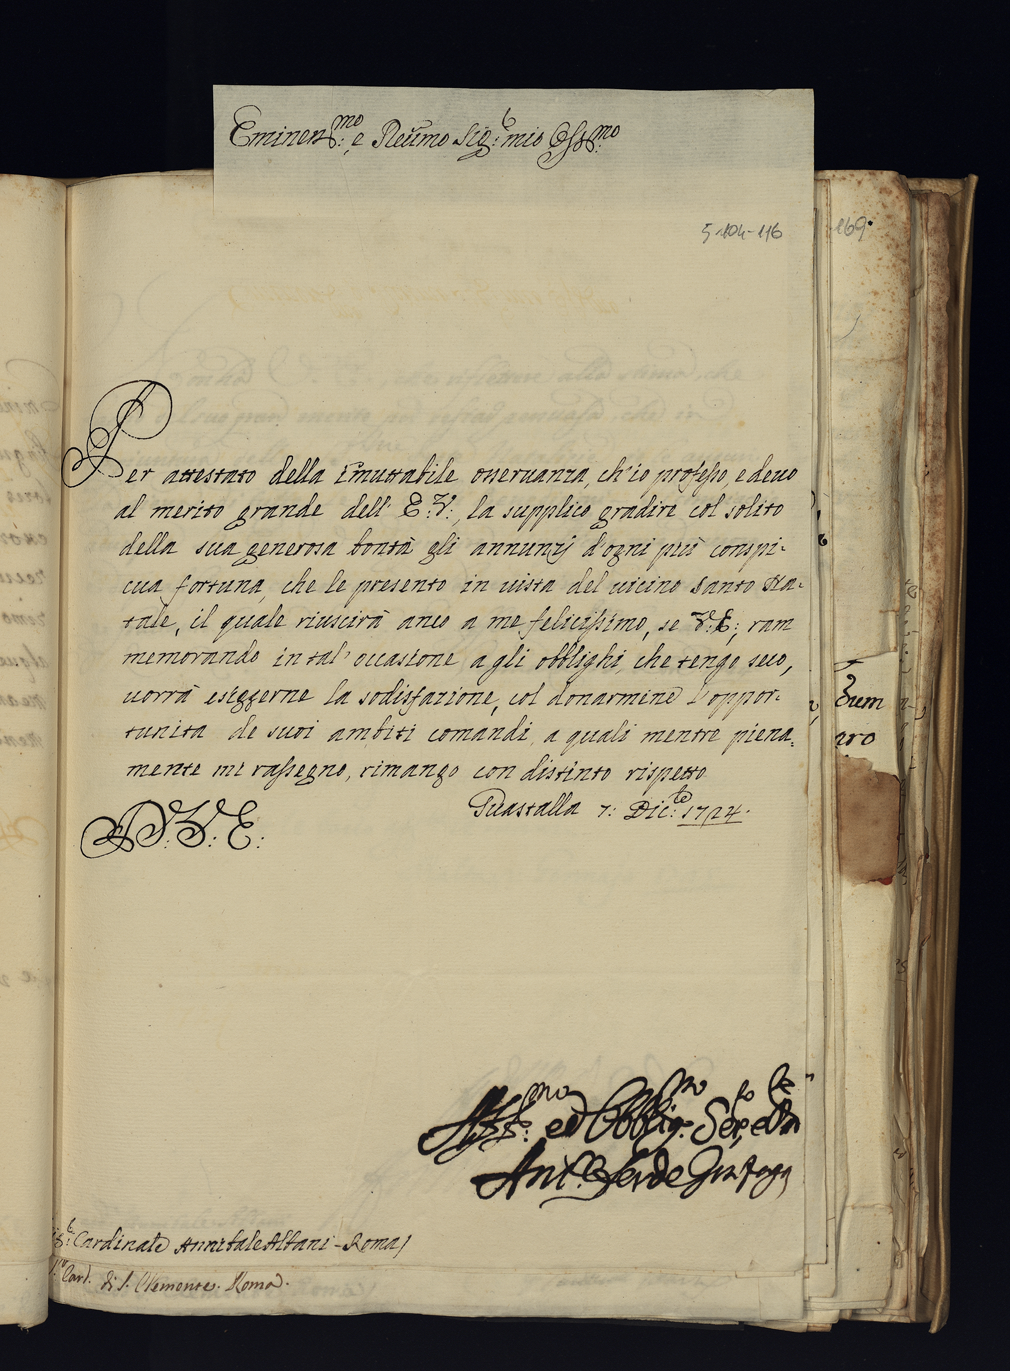 Eminen.mo, e Reũmo Sig:e mio Oss:mo
5-104-116
169.
Per attestato della immuttabile osseruanza, ch'io professo, e deuo
al merito grande dell' E:V:, la supplico gradire col solito
della sua generosa bontà gli annunzj d'ogni più conspi-
cua fortuna, che le presento in uista del uicino Santo Na-
tale, il quale riuscirà anco a me felicissimo, se V:E:, ram
memorando in tal' occasione a gli obblighi, che tengo seco,
uorrà esiggerne la sodisfazione, col donarmene l'oppor-
tunità de suoi ambiti comandi, a quali mentre piena-
mente mi rassegno, rimango con distinto rispetto
Guastalla 7: Dic:e 1724.
D: V: E:
Aff:mo ed Obblig:mo Ser:to e
Ant:o Ferde Gonzaga
Cardinale Annibale Albani - Roma
Card. di S. Clemente. Roma.